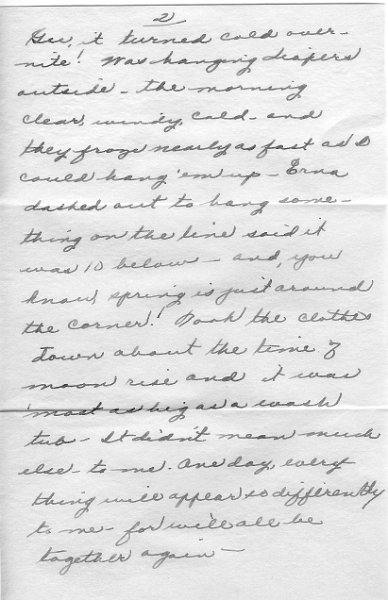 2
Gee, it turned cold over-
nite! Was hanging diapers
outside - the morning
clear, windy, cold - and
they froze nearly as fast as I
could hang 'em up - Erna
dashed out to hang some-
thing on the line said it
was 10 below - and, you
know, spring is just around
the corner! Took the clothes
down about the time of
moon rise and it was
'most as big as a wash
tub - It didn't mean much
else - to me. One day, every
thing will appear so differently
to me - for we'll all be
together again -